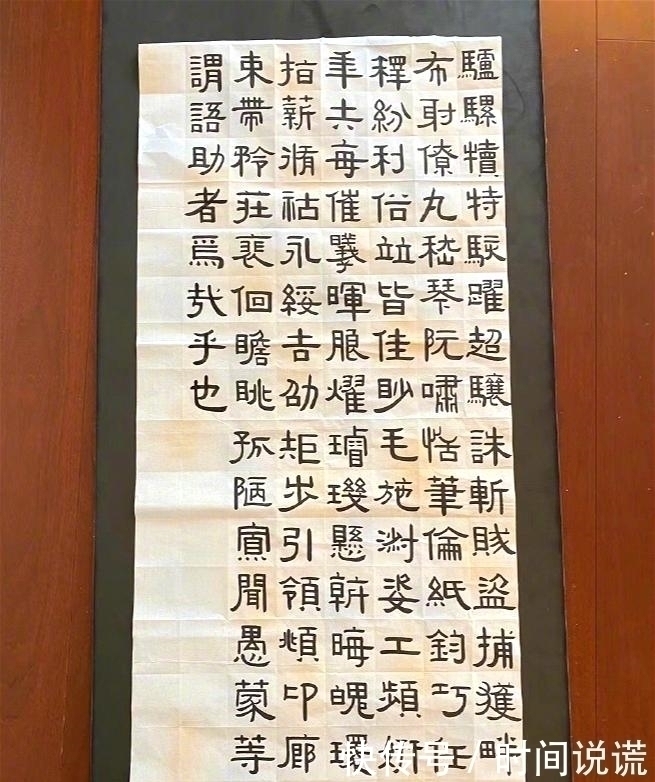 驢騾犢特駭躍超驤誅斬賊盜捕獲畔
布射僚丸嵇琴阮嘯恬筆倫紙鈞巧任
釋紛利俗竝皆佳妙毛施淑姿工頻妍
年矢每催曦暉朗燿璿璣懸斡晦魄環
指薪脩祜永綏吉劭矩步引領頫卬廊
束帶矜莊裵佪瞻眺孤陋寡聞愚蒙等
謂語助者焉哉乎也
快传号 / 时间说谎